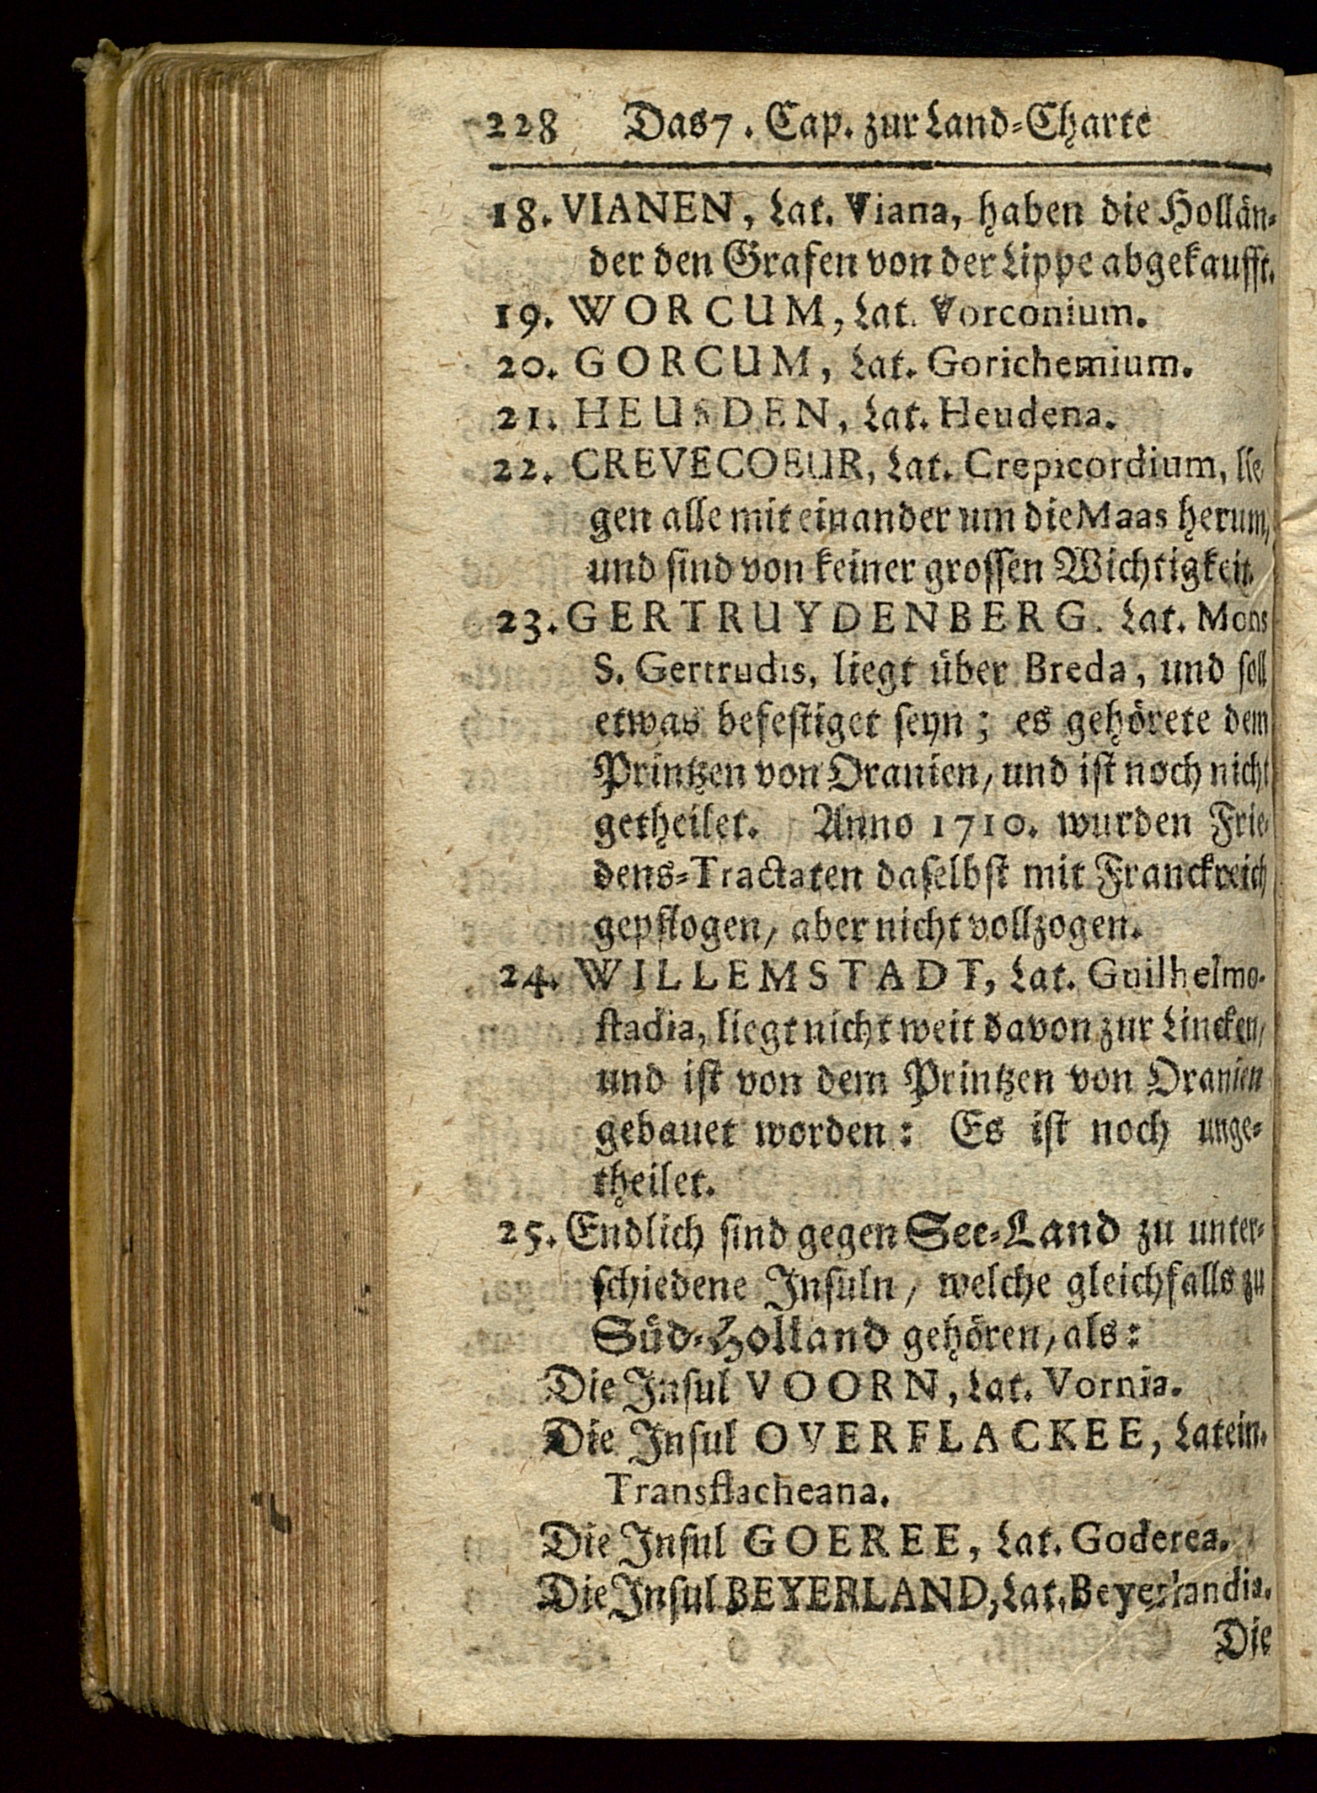 228 Das 7. Cap. zur Land-Charte
18. VIANEN, Lat. Viana, haben die Hollän-
der den Grafen von der Lippe abgekaufft.
19. WORCUM, Lat. Vorconium.
20. GORCUM, Lat. Gorichemium.
21. HEUSDEN, Lat. Heudena.
22. CREVECOEUR, Lat. Crepicordium, lie-
gen alle mit einander um die Maas herum,
und sind von keiner grossen Wichtigkeit.
23. GERTRUYDENBERG. Lat. Mons
S. Gertrudis, liegt über Breda, und soll
etwas befestiget seyn; es gehörete dem
Printzen von Oranien, und ist noch nicht
getheilet. Anno 1710. wurden Frie-
dens-Tractaten daselbst mit Franckreich
gepflogen, aber nicht vollzogen.
24. WILLEMSTADT, Lat. Guilhelmo-
stadia, liegt nicht weit davon zur Lincken,
und ist von dem Printzen von Oranien
gebauet worden: Es ist noch unge-
theilet.
25. Endlich sind gegen See-Land zu unter-
schiedene Insuln, welche gleichfalls zu
Süd-Holland gehören, als:
Die Insul VOORN, Lat. Vornia.
Die Insul OVERFLACKEE, Latein.
Transflacheana.
Die Insul GOEREE, Lat. Goderea.
Die Insul BEYERLAND, Lat. Beyerlandia.
Die